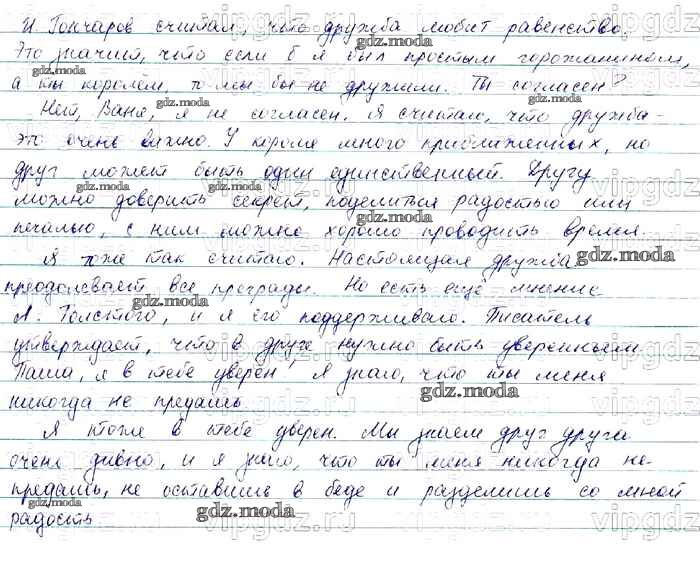 И. Гончаров считал, что дружба любит равенство.
Это значит, что если б я был простым горожанином,
а ты королём, то мы бы не дружили. Ты согласен?
Нет, Ваня, я не согласен. Я считаю, что дружба -
это очень важно. У короля много приближенных, но
друг может быть один единственный. Другу
можно доверить секрет, поделиться радостью или
печалью, с ним можно хорошо проводить время.
Я тоже так считаю. Настоящая дружба
преодолевает все преграды. Но есть ещё мнение
Л. Толстого, и я его поддерживаю. Писатель
утверждает, что в друге нужно быть уверенным
Паша, я в тебе уверен, я знаю, что ты меня
никогда не предашь
Я тоже в тебе уверен. Мы знаем друг друга
очень давно, и я знаю, что ты меня никогда не
предашь, не оставишь в беде и разделишь со мной
радость
gdz.moda
vipgdz